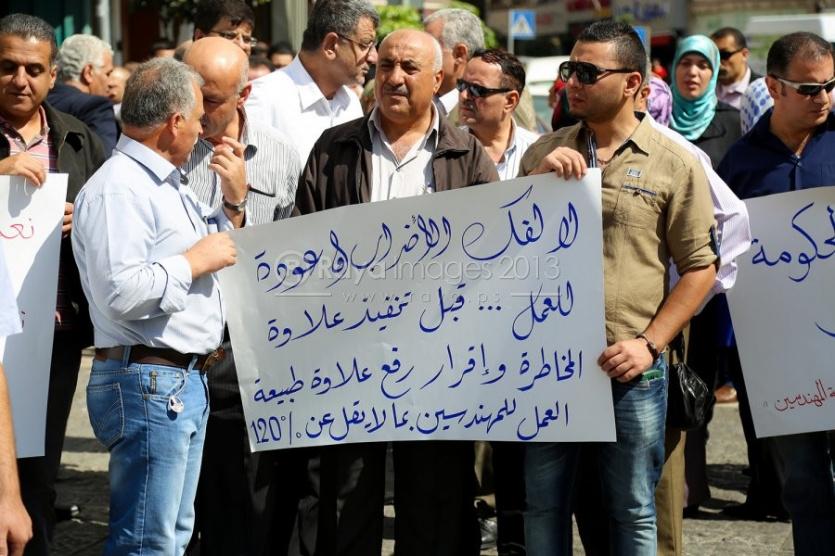 لا لفك الأضراب او عودة
للعمل ... قبل تنفيذ علاوة
المخاطرة وإقرار رفع علاوة طبيعة
العمل للمهندسين بما لا يقل عن 120%
© Raya Images 2013
نعم
لحكومة
المهندسين